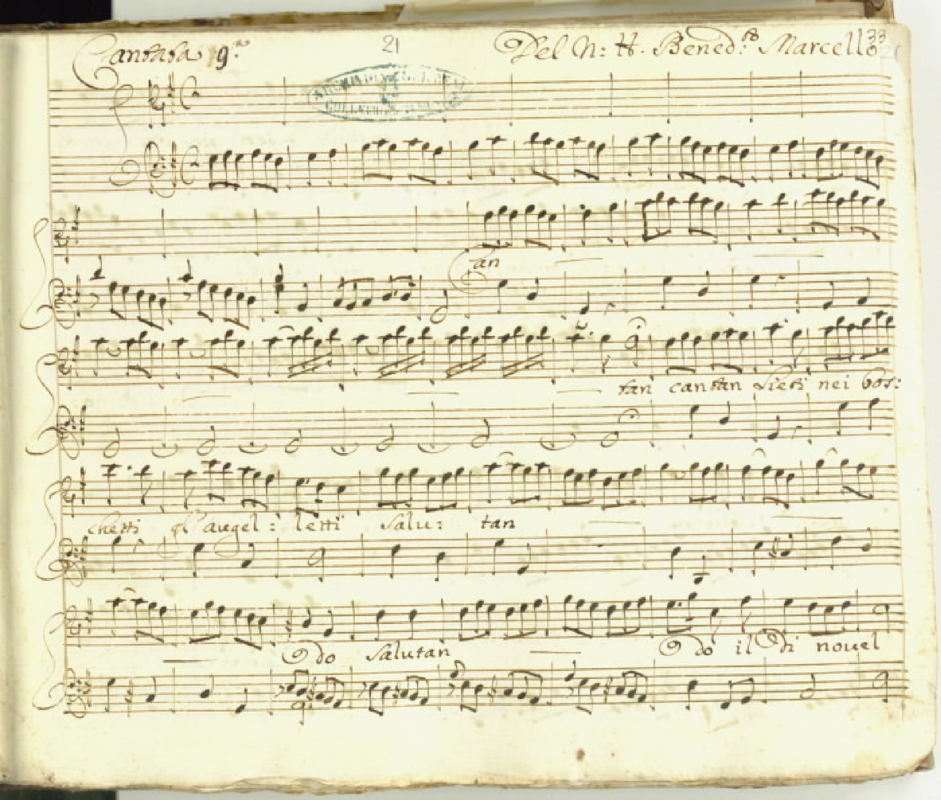 Cantata 9.a 21 Del N: H. Bened:to Marcello 33
Can
tan cantan Lieti nei bos:
chetti gl'augel: letti Salu: tan
do Salutan do il Di novel